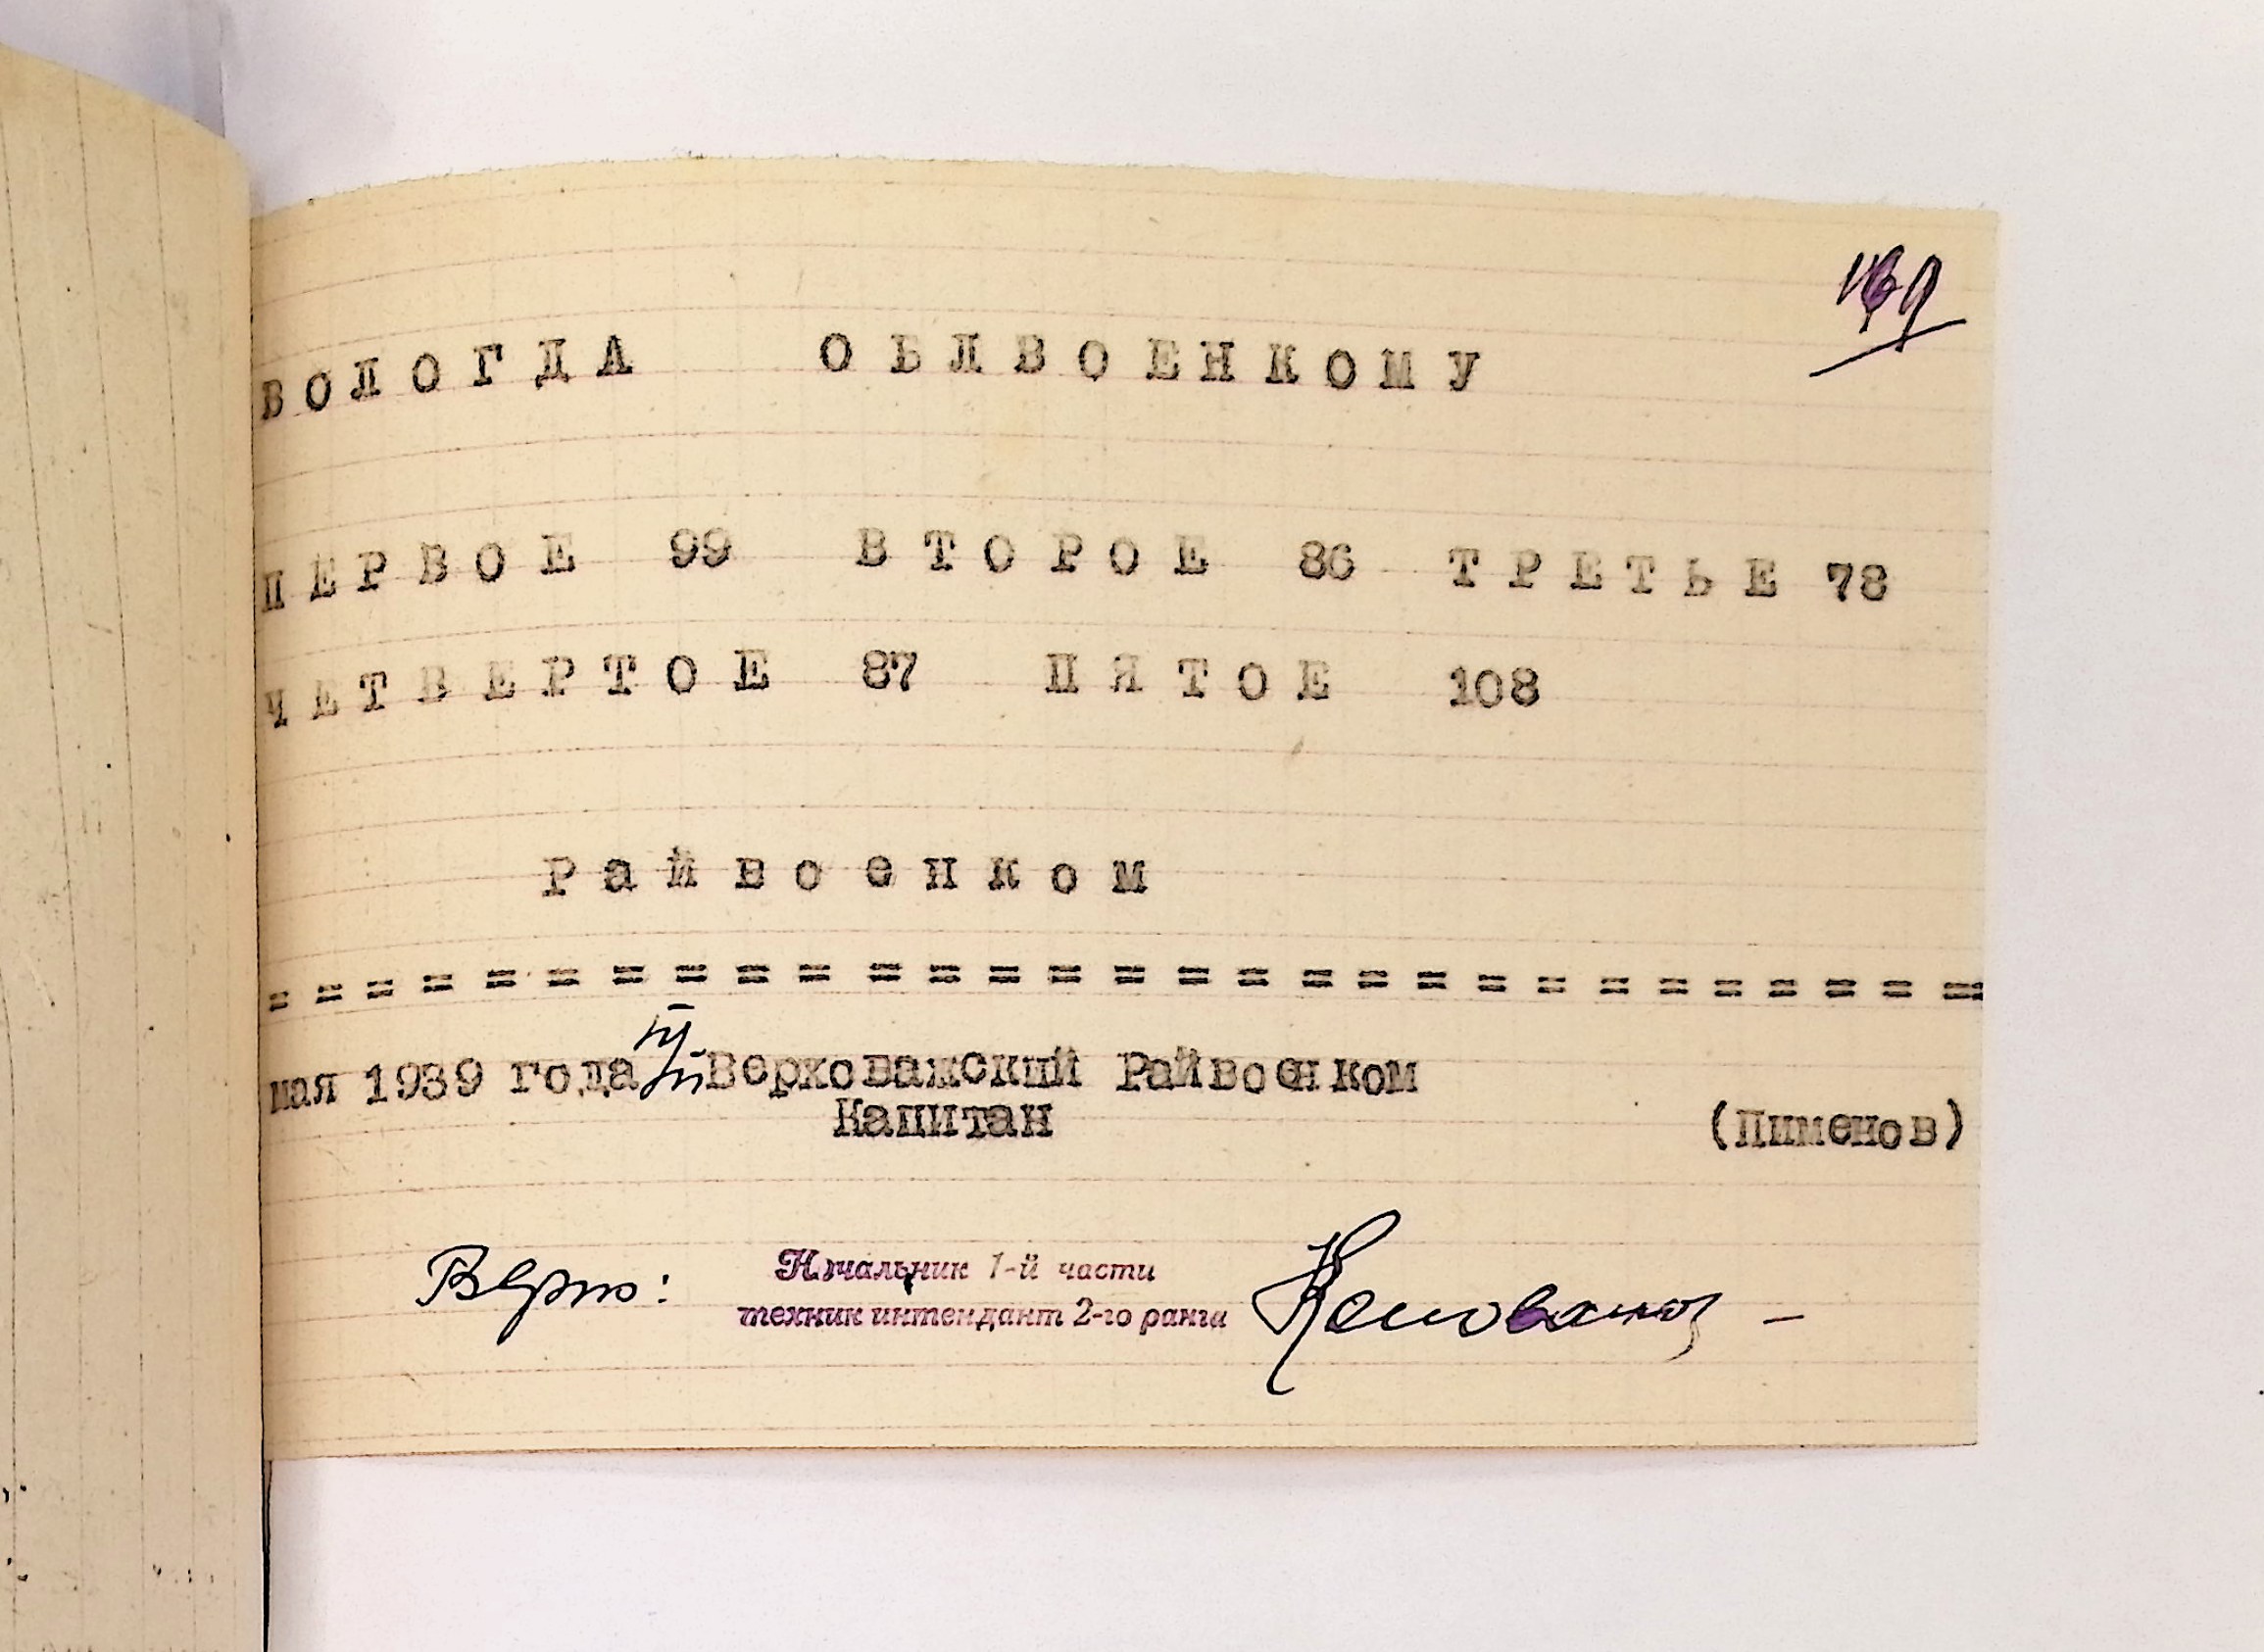 169
ВОЛОГДА ОБЛВОЕНКОМУ
ПЕРВОЕ 99 ВТОРОЕ 86 ТРЕТЬЕ 78
ЧЕТВЕРТОЕ 87 ПЯТОЕ 108
Райвоенком
= = = = = = = = = = = = = = = = = = = = = = = = = = = = =
мая 1939 года Верховажский Райвоенком
Капитан (Пименов)
Верно: Начальник 1-й части
техник интендант 2-го ранга